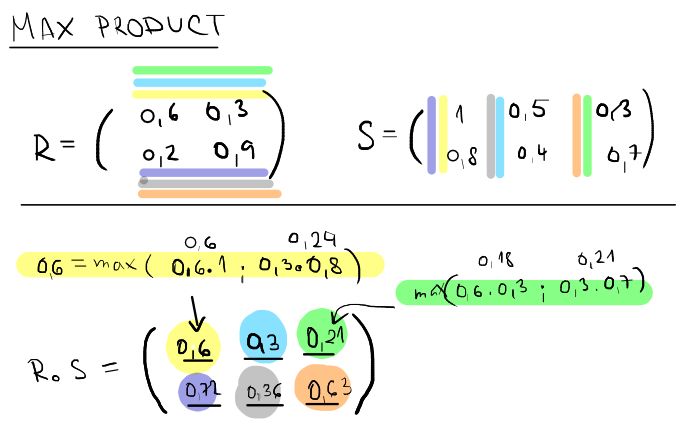 MAX PRODUCT
R = ( 0,6 0,3
0,2 0,9 )
S = ( 1 0,5 0,3
0,8 0,4 0,7 )
0,6 0,24
0,6 = max ( 0,6 . 1 ; 0,3 . 0,8 )
0,18 0,21
max ( 0,6 . 0,3 ; 0,3 . 0,7 )
R o S = ( 0,6 0,3 0,21
0,72 0,36 0,63 )